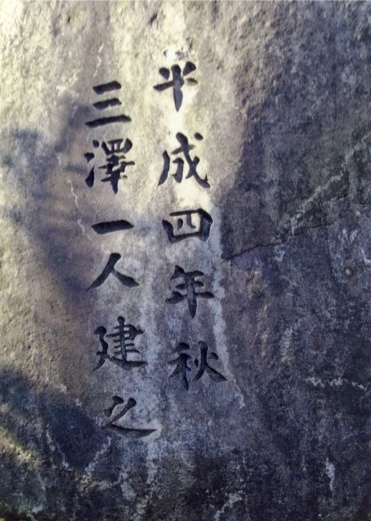 平成四年秋
三澤一人建之